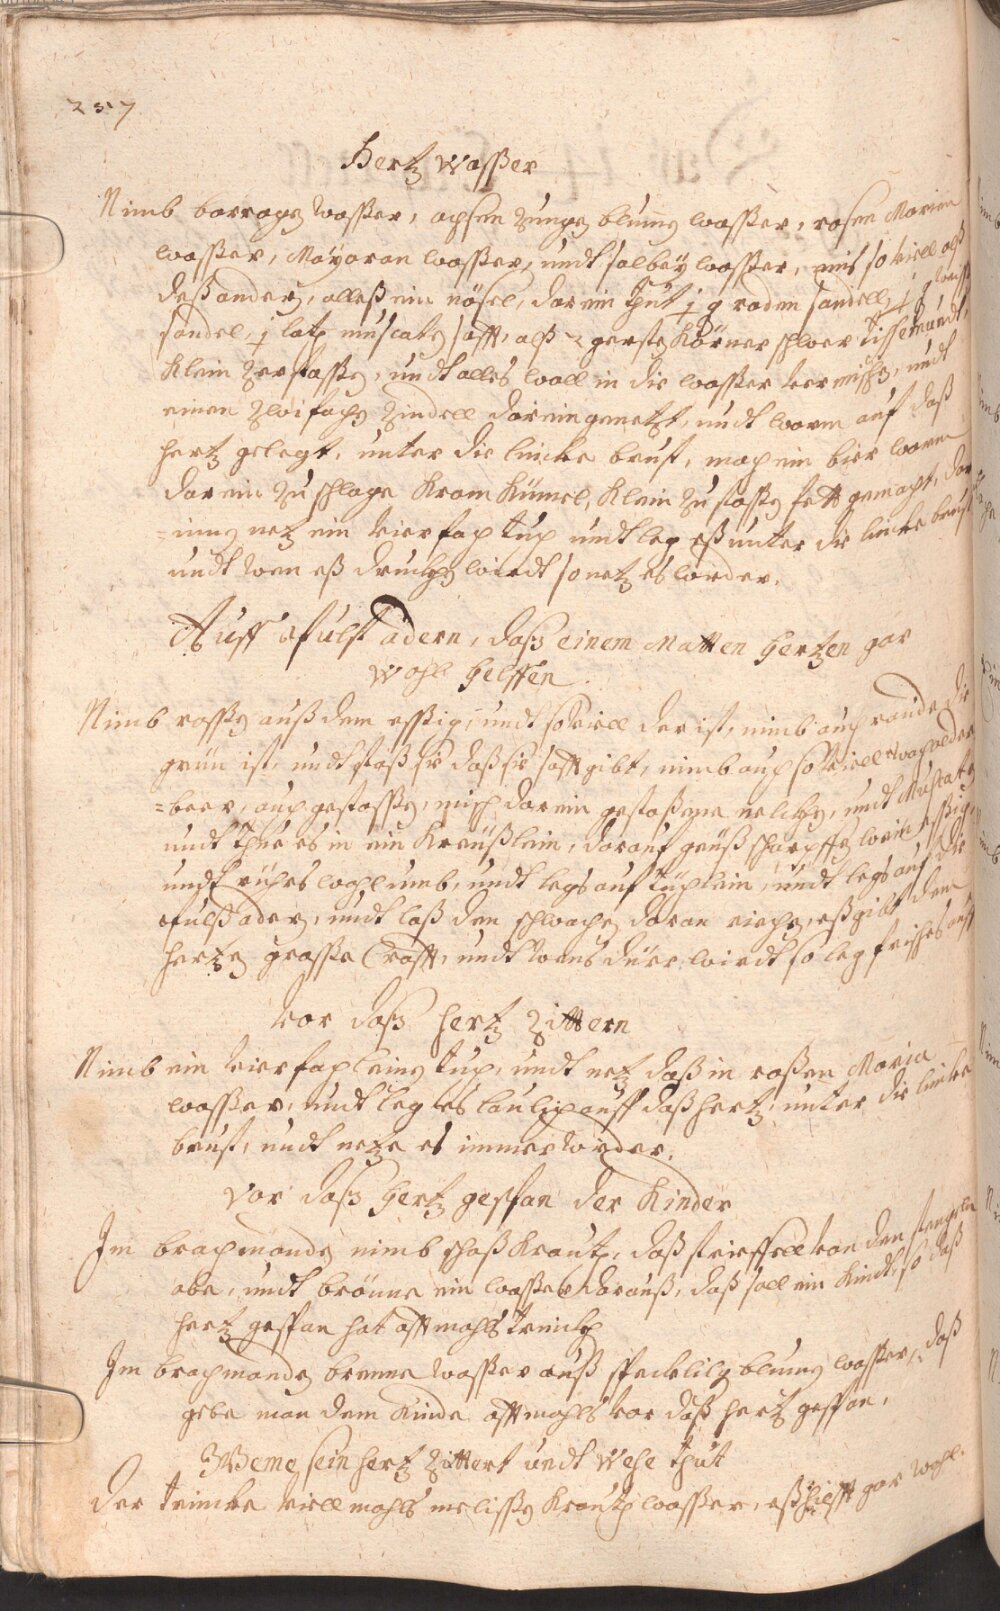 257
Hertz wasser
Nimb borragen wasser, ochsen zungen blumen wasser, rosen Marien
wasser, Mayoran wasser, undt salbey wasser, eins so viell alß
deß andern, alleß ein nösel, darein thut j q roden sandell, j q weiß
sandel, j loth muscaten safft, alß 2 gersten Körner schwer Bissemundt,
Klein zerstossen, undt alles woll in die wasser vermischen, undt
einen zwifachen zindell darein genetzt, undt warm auf daß
hertz gelegt, unter die lincke brust, mach ein bier warm
darein zu schlage Kram Kümel, Klein zu stossen fett gemacht, dar
=innen netz ein vierfach tuch undt leg eß unter die lincke brust
undt wen eß drucken wirdt so netz es wieder.
Auff Pulst ädern, daß einem Matten Hertzen gar
wohl helffen.
Nimb rossen auß dem essig, undt so viell der ist, nimb auch raude die
grün ist, undt stoß sie daß sie safft gibt, nimb auch so viell wachholder
=beer, auch gestossen, misch darein gestoßene nelcken, undt Muscaten
undt thue es in ein Kreüßlein, darauf geuß scharpffen wein essig,
undt rührs wohl umb, undt legs auf tüchlein, undt legs auf die
Pulß adern, undt laß den schwachen daran riechen, eß gibt dem
hertzen grosse Crafft, undt wens dürr wirdt so leg frisches auff
Vor daß hertz zittern
Nimb ein vierfach leinen tuch, undt netz daß in rosen Maria
wasser, undt leg es laulich auff daß hertz, unter die lincke
brust, undt netze es immer wieder.
Vor daß Hertz gespan der Kinder
Im brachmonden nimb schoß Krautz, daß streiffell von den stengeln
abe, undt brönne ein wasser darauß, daß soll ein Kindt, so daß
hertz gespan hat offtmahls trincken
Im brachmonden brenne wasser auß speckliligen blumen wasser, daß
gebe man dem Kinde offtmahls vor daß hertz gespan.
Weme sein hertz zittert undt wehe thut
Der trincke viellmahls melissen Krautz wasser, eß hilfft gar wohl.